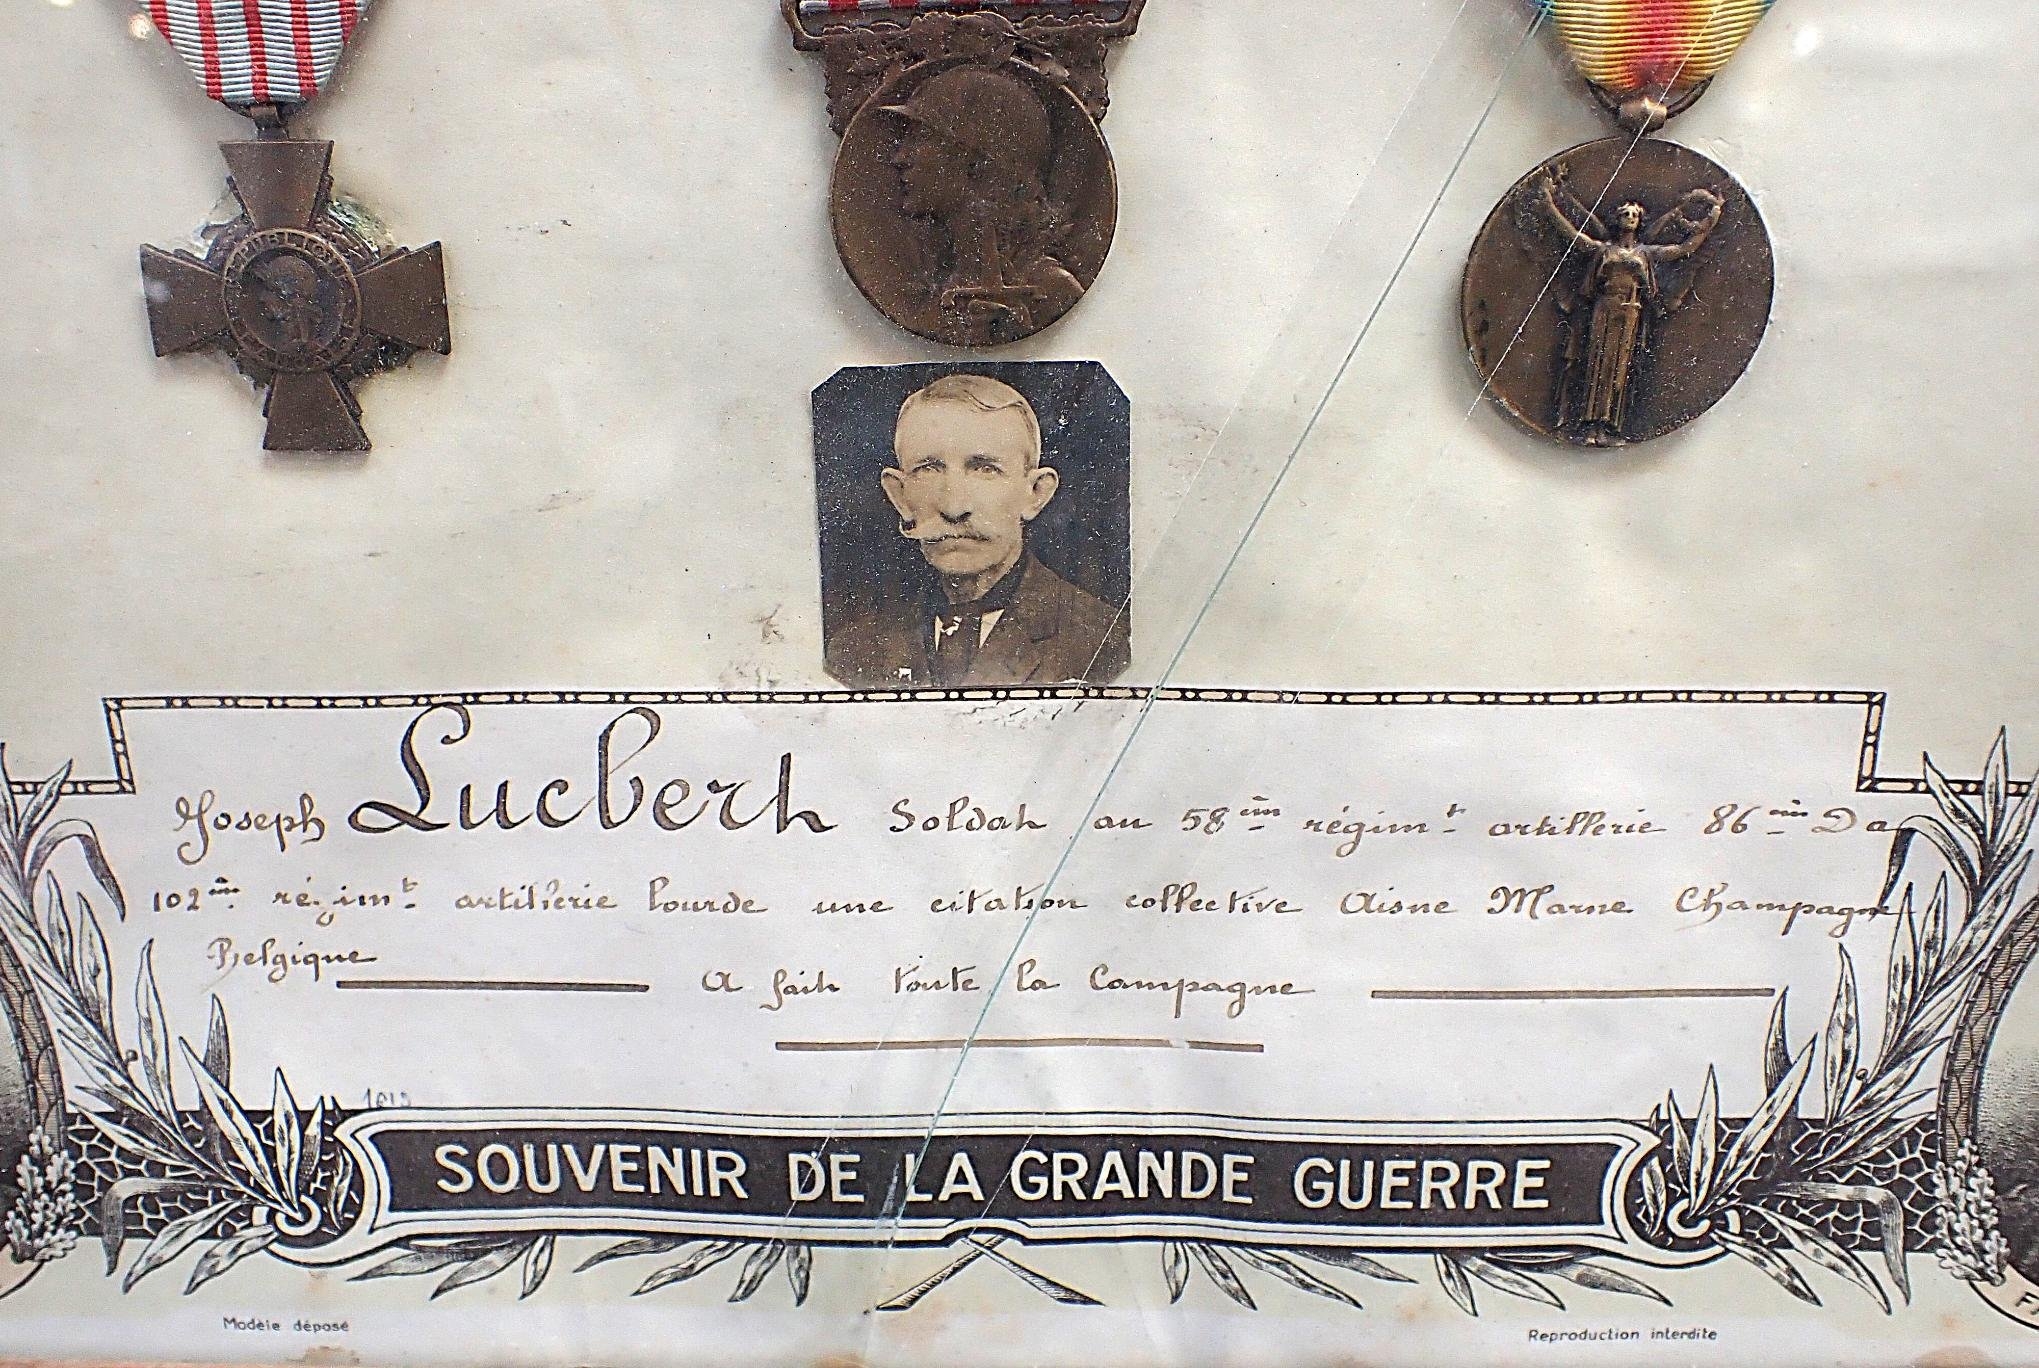 RÉPUBLIQUE FRANÇAISE
Joseph Lucbert Soldat au 58ème régimt artillerie 86ème Da
102ème régimt artillerie lourde une citation collective Aisne Marne Champagne
Belgique
A fait toute la Campagne
SOUVENIR DE LA GRANDE GUERRE
Modèle déposé
Reproduction interdite